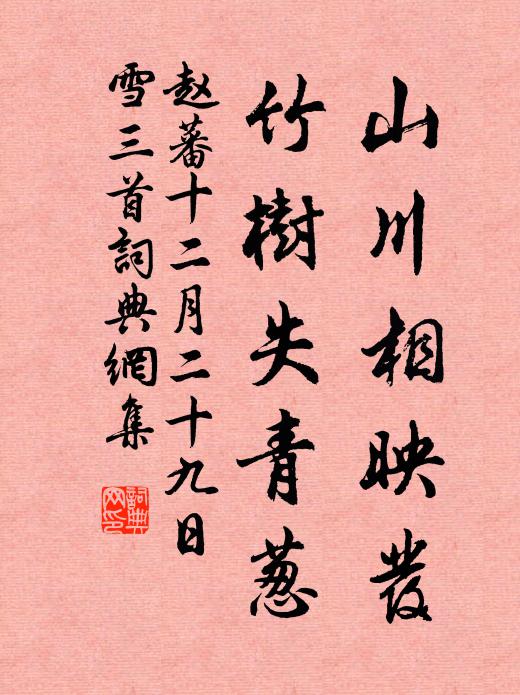 山川相映發
竹樹失青葱
赵蕃十二月二十九日
雪三首詞典網集
詞典
网印